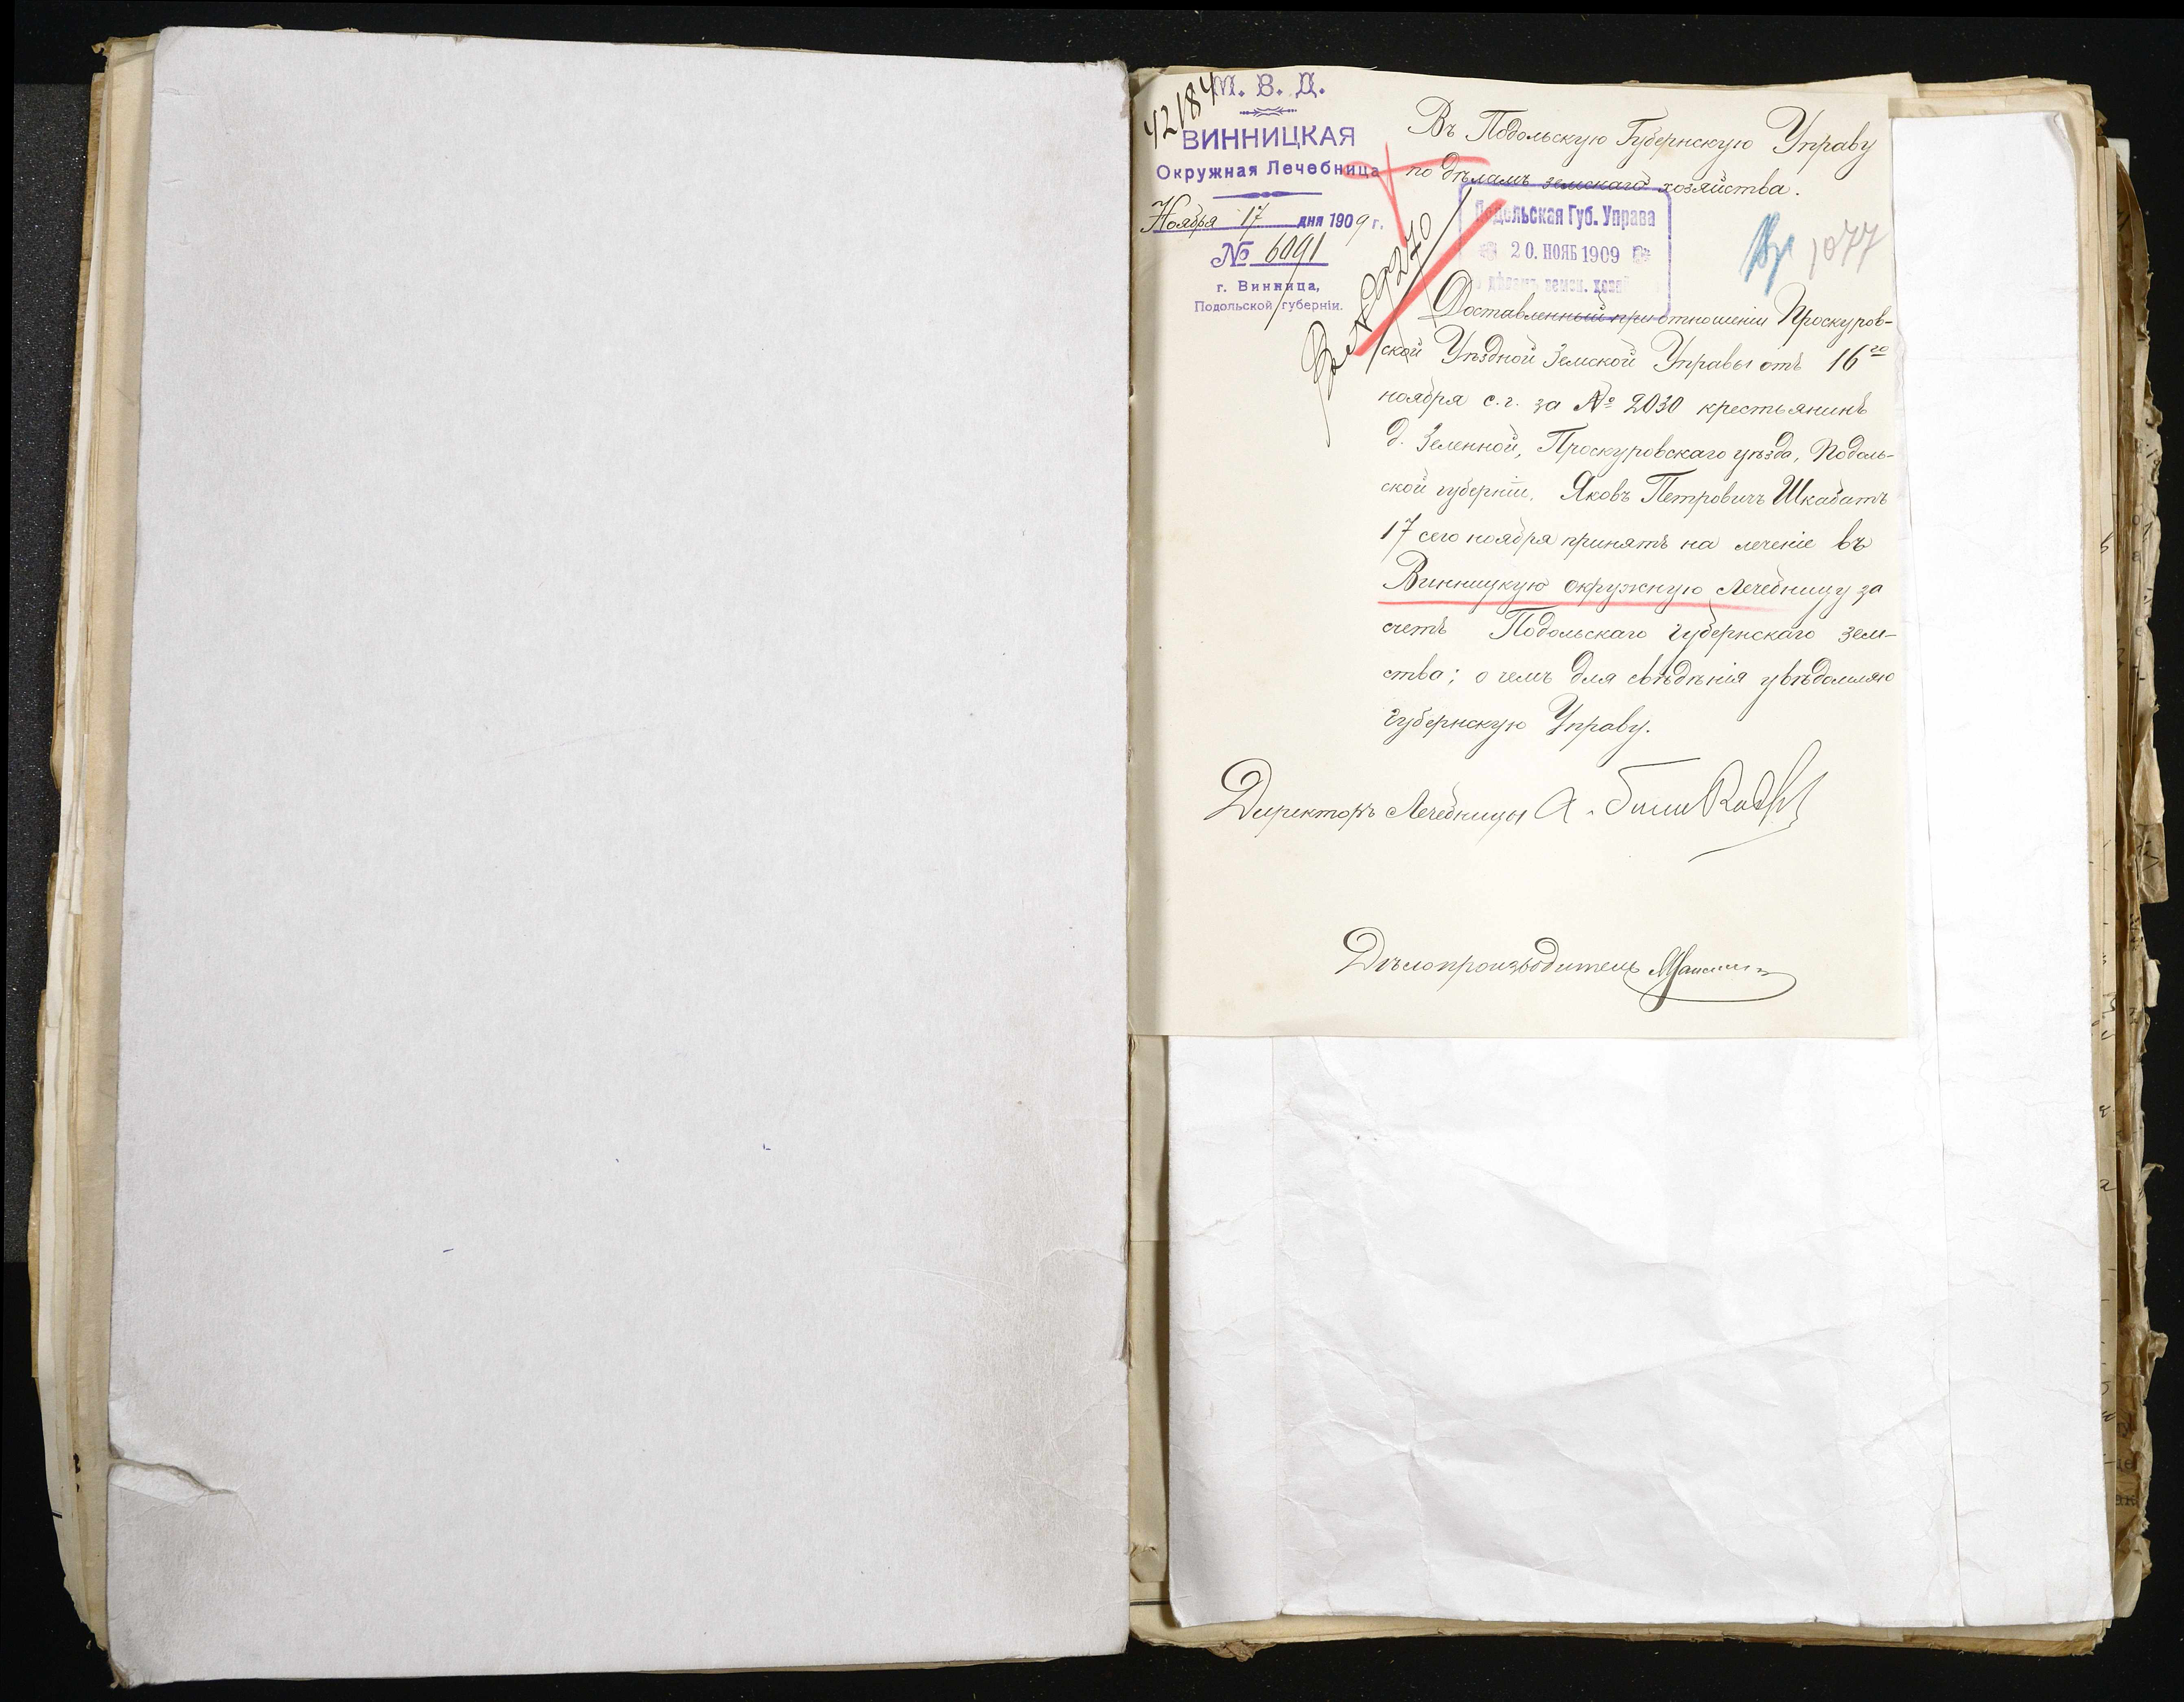 42184
М. В. Д.
ВИННИЦКАЯ
Окружная Лечебница
Ноября 17 дня 1909 г.
№ 6091
г. Винница,
Подольской губерніи.
Въ Подольскую Губернскую Управу
по дѣламъ земскаго хозяйства.
Подольская Губ. Управа
20. НОЯБ 1909
дѣламъ земск. хозяй
1077
Доставленный при отношеніи Проскуров-
ской Уѣздной Земской Управы отъ 16го
ноября с.г. за № 2030 крестьянинъ
д. Зеленной, Проскуровскаго уѣзда, Подоль-
ской губерніи, Яковъ Петровичъ Шкабатъ
17 сего ноября принятъ на леченіе въ
Винницкую окружную лечебницу за
счетъ Подольскаго губернскаго зем-
ства; о чемъ для свѣдѣнія увѣдомляю
губернскую Управу.
Директоръ Лечебницы А.
Дѣлопроизводитель